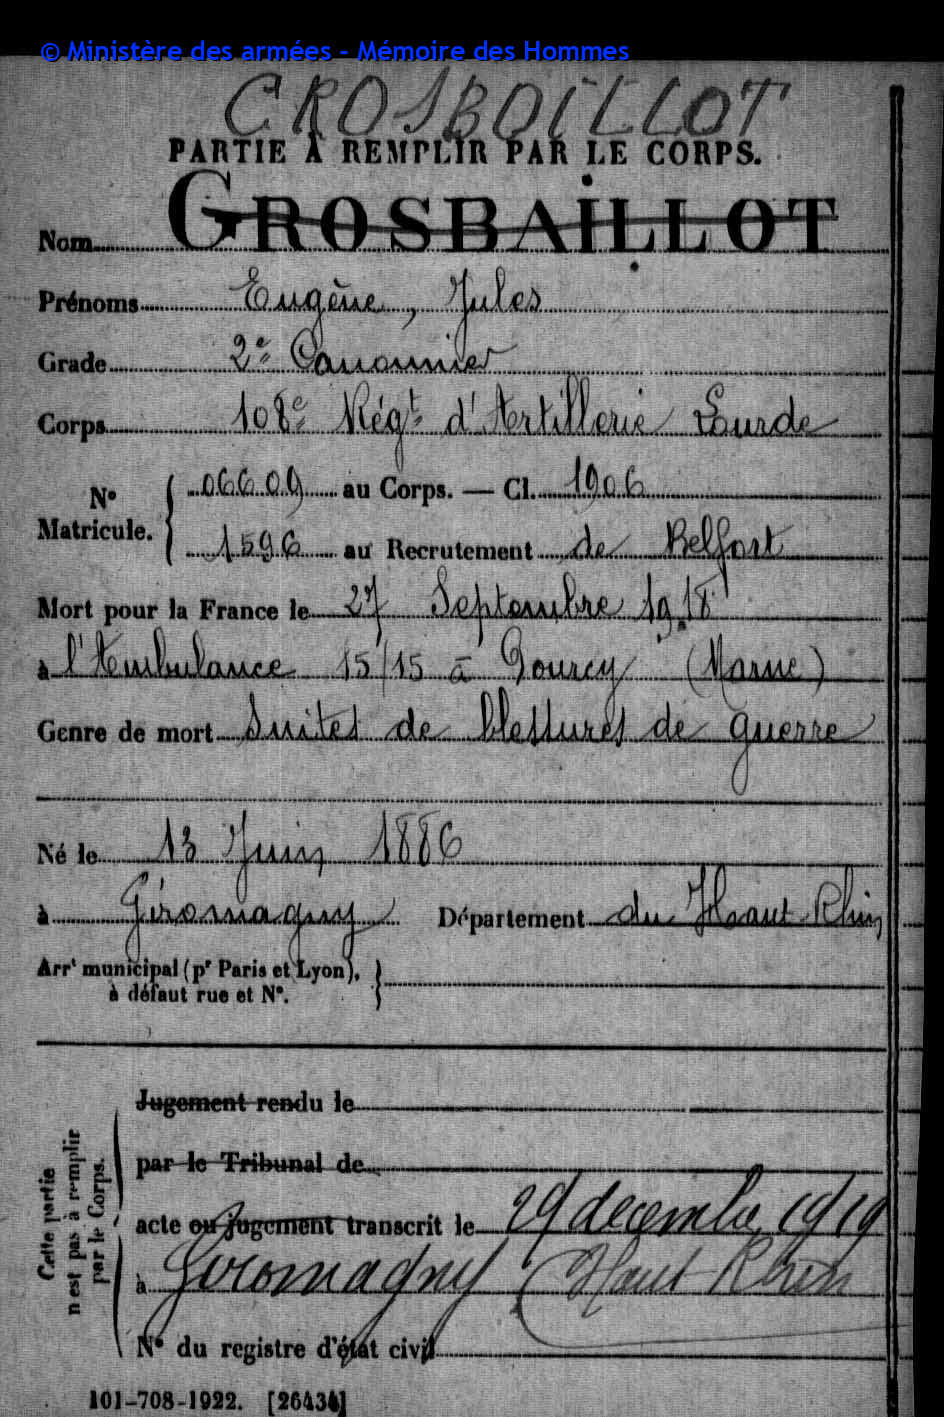 © Ministère des armées - Mémoire des Hommes
GROSBOILLOT
PARTIE À REMPLIR PAR LE CORPS.
Nom GROSBAILLOT
Prénoms Eugène, Jules
Grade 2e Canonnier
Corps 108e Régt d'Artillerie Lourde
N° Matricule. 06609 au Corps. — Cl. 1906
1596 au Recrutement de Belfort
Mort pour la France le 27 Septembre 1918
à l'Ambulance 15/15 à Dourcy (Marne)
Genre de mort Suites de blessures de guerre
Né le 13 Juin 1886
à Giromagny Département du Haut Rhin
Arrt municipal (pr Paris et Lyon), à défaut rue et N°.
Cette partie n'est pas à remplir par le Corps.
Jugement rendu le
par le Tribunal de
acte ou jugement transcrit le 29 décembre 1919
à Giromagny (Haut Rhin
N° du registre d'état civil
101-708-1922. [26434]